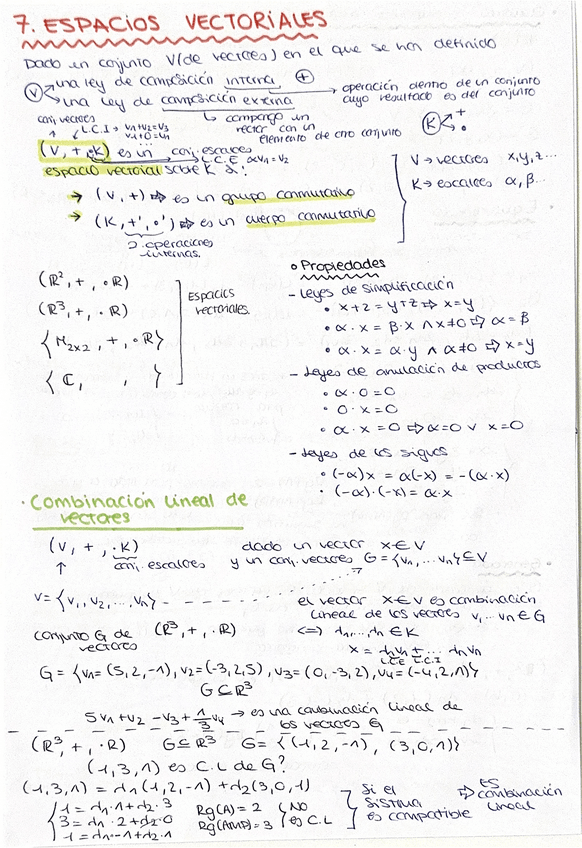 7. ESPACIOS VECTORIALES
Dado un conjunto V (de vectores) en el que se han definido
V una ley de composición interna +
una ley de composición externa → operación dentro de un conjunto cuyo resultado es del conjunto
↳ compongo un vector con un elemento de otro conjunto
K → + ·
conj. vectores
L.C.I → v1+v2=v3
v1+0=v1
(V, +, ·K) es un conj. escalares
L.C.E αv1=v2
espacio vectorial sobre K si:
V → vectores x,y,z...
K → escalares α, β...
→ (V, +) ⇒ es un grupo conmutativo
→ (K, +', ·') ⇒ es un cuerpo conmutativo
2 operaciones internas.
(R², +, ·R)
(R³, +, ·R)
{M2x2, +, ·R}
{C, , }
Espacios vectoriales.
• Propiedades
- Leyes de simplificación
x+z = y+z ⇒ x=y
• α·x = β·x ∧ x≠0 ⇒ α=β
• α·x = α·y ∧ α≠0 ⇒ x=y
- Leyes de anulación de productos
• α·0=0
• 0·x=0
• α·x=0 ⇒ α=0 ∨ x=0
- Leyes de los signos
• (-α)x = α(-x) = -(α·x)
(-α)·(-x) = α·x
· Combinación lineal de
vectores
(V, +, ·K)
conj. escalares
dado un vector x∈V
y un conj. vectores G={v1,...vn}⊆V
V={v1, v2, ..., vn}
el vector x∈V es combinación
lineal de los vectores v1...vn∈G
conjunto G de vectores (R³, +, ·R)
⇔ λ1,...λn∈K
x = λ1v1+... λnvn
L.C.E L.C.I
G = {v1=(5,2,-1), v2=(-3,2,5), v3=(0,-3,2), v4=(-4,2,1)}
G⊆R³
5v1+v2-v3+1/3v4 → es una combinación lineal de
los vectores G
(R³, +, ·R) G⊆R³ G={(1,2,-1), (3,0,1)}
(1,3,1) es C.L de G?
(1,3,1) = λ1(1,2,-1)+λ2(3,0,1)
1=λ1·1+λ2·3
3=λ1·2+λ2·0
1=λ1·-1+λ2·1
Rg(A)=2
Rg(Amp)=3
NO es C.L
Si el sistema es compatible ⇒ es combinación lineal